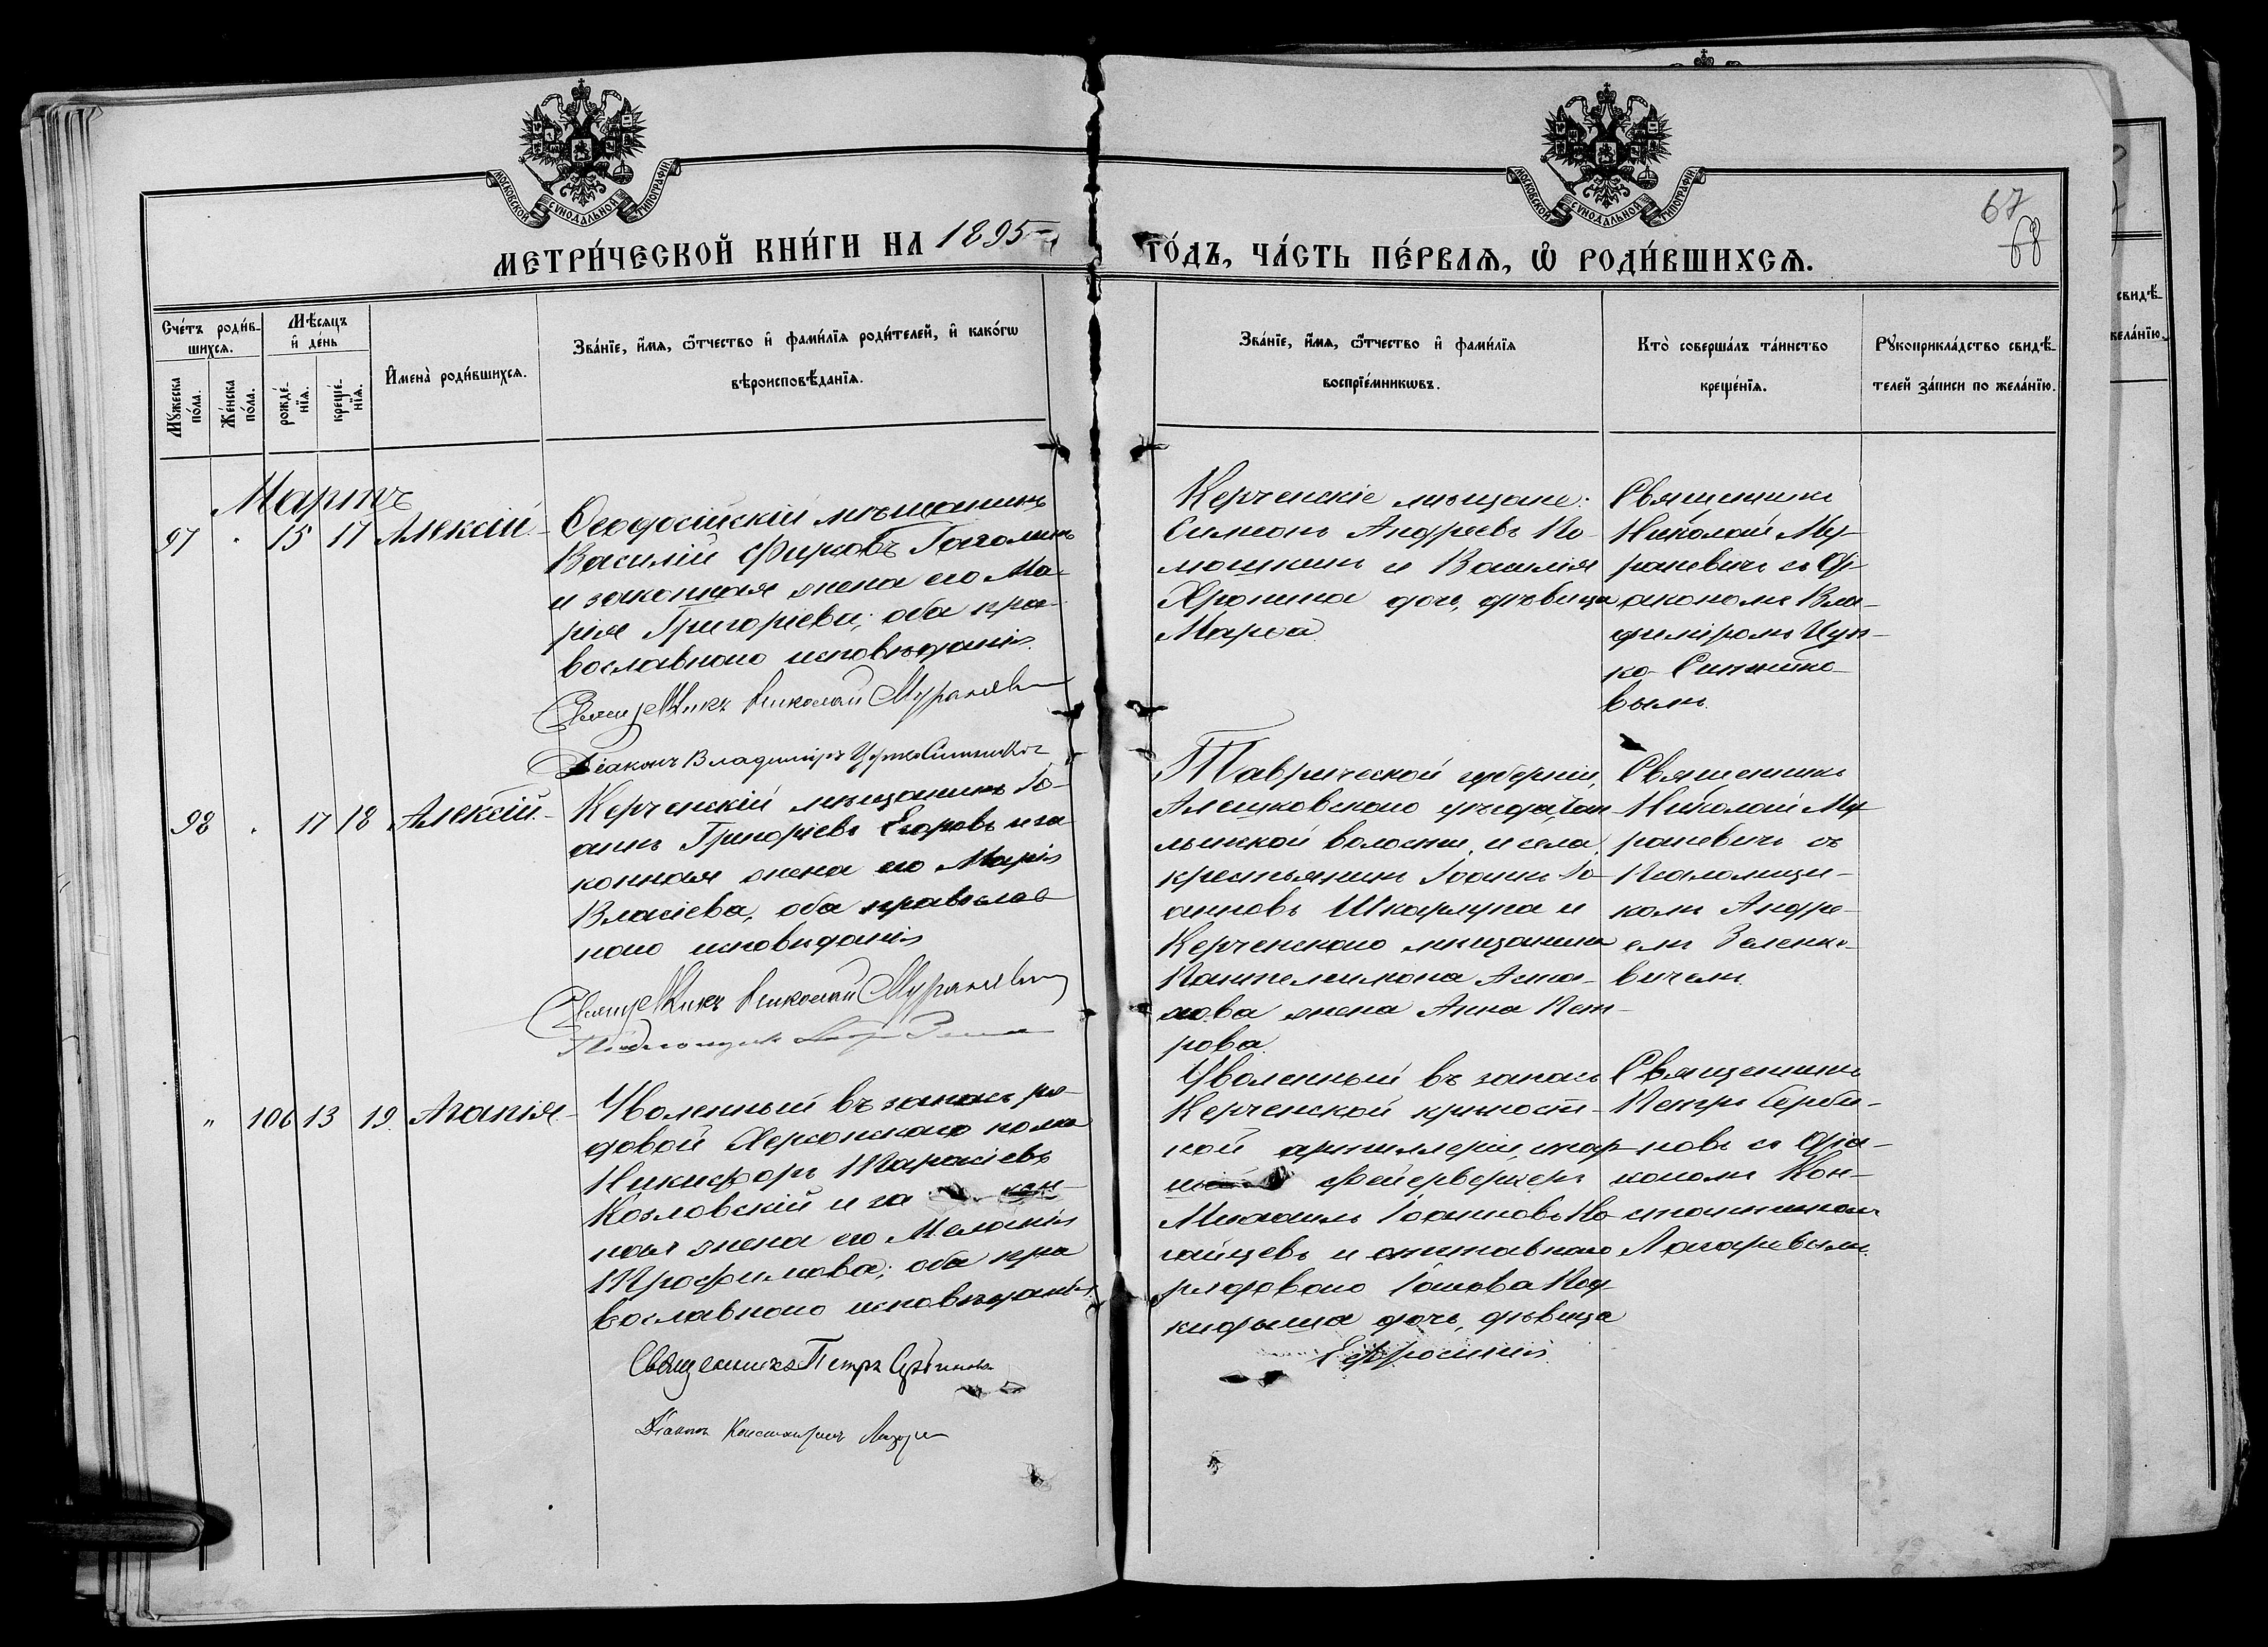 МОСКОВСКОЙ СѴНОДАЛЬНОЙ ТИПОГРАФІИ
МОСКОВСКОЙ СѴНОДАЛЬНОЙ ТИПОГРАФІИ
67
68
МЕТРИ́ЧЕСКОЙ КНИ́ГИ НА 1895
ГО́ДЪ, ЧА́СТЬ ПЕ́РВАѦ, Ѡ҆ РОДИ́ВШИХСѦ.
Сче́тъ роди́в-
шихсѧ.
Мꙋ́жеска по́ла.
Же́нска по́ла.
Мѣ́сѧцъ
и҆ де́нь
рожде́-
нїѧ.
креще́-
нїѧ.
И҆мена̀ роди́вшихсѧ.
Зва́нїе, и҆́мѧ, ѻ҆́тчество и҆ фами́лїѧ роди́телей, и҆ како́гѡ
вѣроисповѣ́данїѧ.
Зва́нїе, и҆́мѧ, ѻ҆́тчество и҆ фами́лїѧ
воспрїе́мникѡвъ.
Кто̀ соверша́лъ та́инство
креще́нїѧ.
Рꙋкоприкла́дство свидѣ́-
телей за́писи по жела́нїю.
свидѣ́-
жела́нїю.
Мартъ
97 15 17 Алексій.
Ѳеодосійскій мѣщанинъ
Василій Фирковъ
и законная жена его Ма-
рія Григоріева; оба пра-
вославного исповѣданія.
Священникъ Николай Мураневич
Діаконъ Владиміръ
Керченскіе мѣщане:
Симеонъ Андреевъ По-
мошкинъ и Василія
Хронина дочь, дѣвица
Марѳа.
Священникъ
Николай Му-
раневичъ съ Ді-
акономъ Вла-
диміромъ
ко-Ситнико-
вымъ.
98 17 18 Алексій.
Керченскій мѣщанинъ Іо-
аннъ Григоріевъ Егоровъ и за
конная жена его Марія
Власіева, оба православ
ного исповѣданія
Священникъ Николай Мураневич
Таврической губерніи,
Алешковского уѣзда,
волости, и села,
крестьянинъ Іоаннъ Іо-
анновъ Шкарлупа и
Керченского мѣщанина
Пантелеимона
жена Анна Пет-
рова.
Священникъ
Николай Му-
раневичъ съ
Псаломщи-
комъ Андре-
емъ Зеленке-
вичемъ.
" 106 13 19. Агапія.
Уволенный въ запасъ ря-
довой Херсонского полка
Никифоръ Тарасіевъ
Козловскій и за кон-
ная жена его Меланія
Трофимова; оба пра
вославного исповѣданія
Священникъ Петръ Сербиновъ
Діаконъ Константинъ Лазарев
Уволенный въ запасъ
Керченской крѣпост-
ной артиллеріи, стар-
шій фейерверкеръ
Михаилъ Іоанновъ Но
гайцевъ и отставного
рядового Іакова
дочь, дѣвица
Ефросинія.
Священникъ
Петръ Серби-
новъ съ Діа-
кономъ Кон-
стантиномъ
Лазаревымъ.